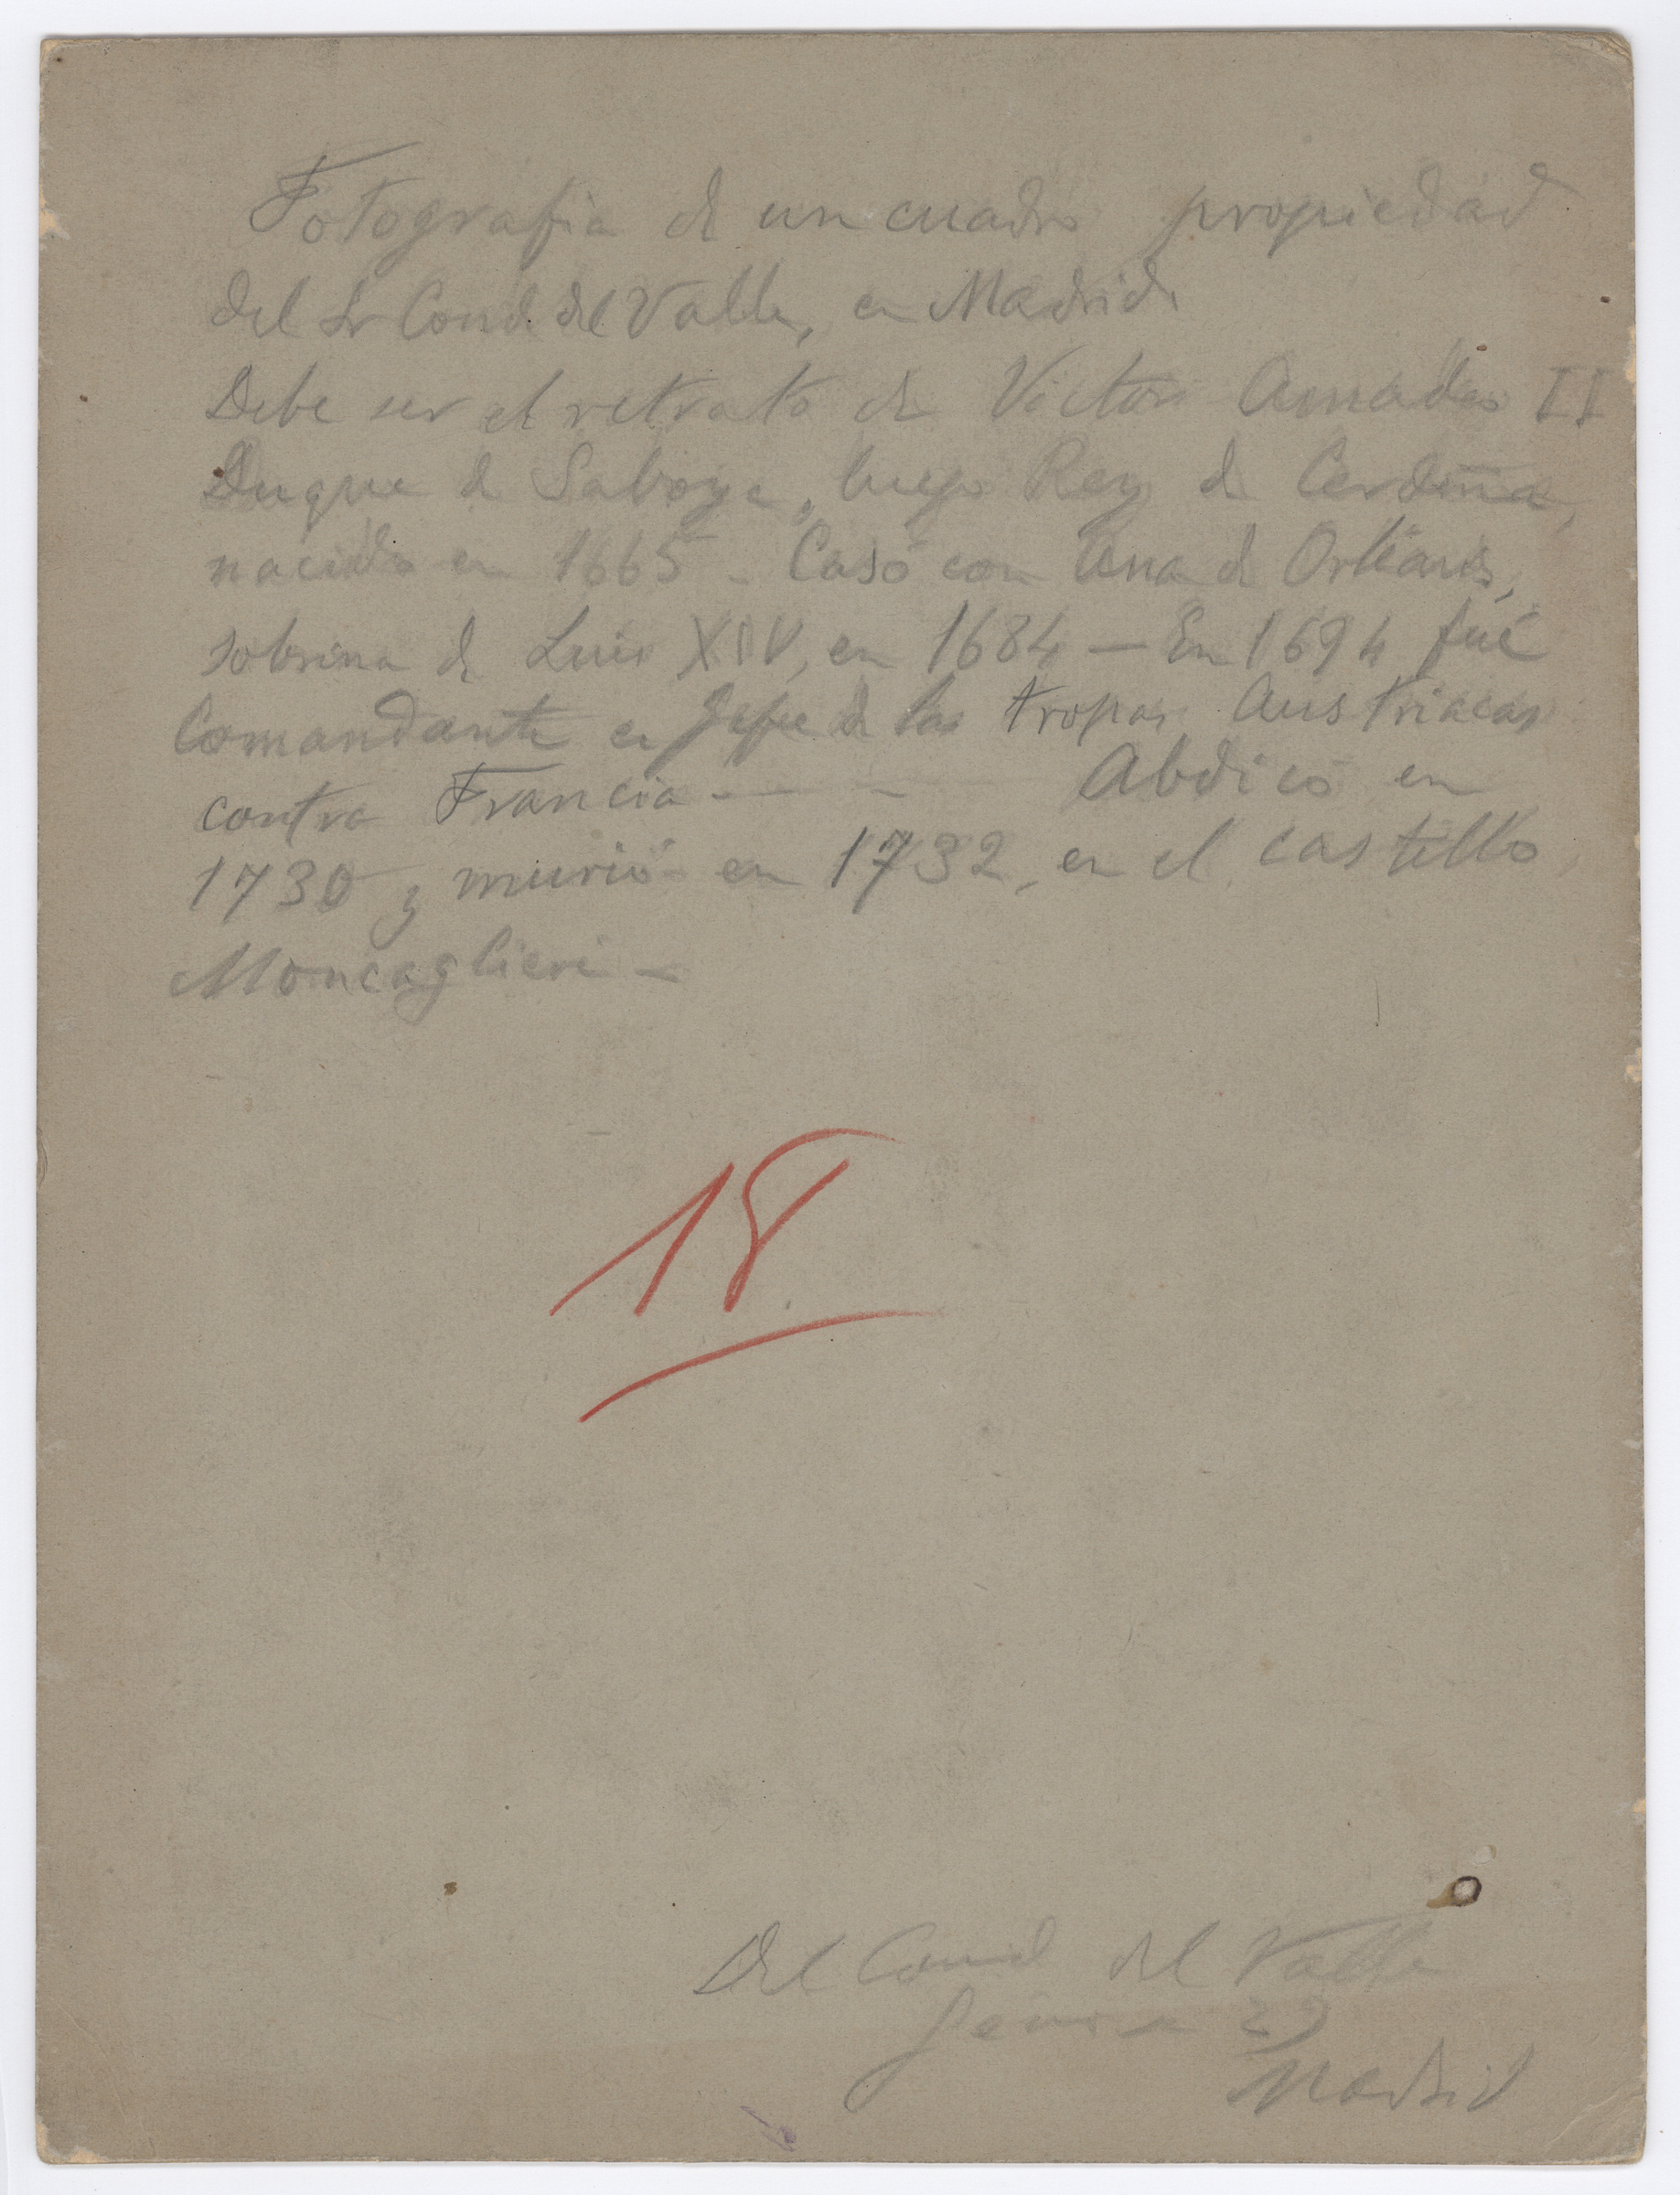 Fotografia de un cuadro propiedad
del Sr Conde del Valle, en Madrid.
Debe ser el retrato de Victor Amadeo II
Duque de Saboya, luego Rey de Cerdeña,
nacido en 1665 - Casó con Ana de Orleans,
sobrina de Luis XIV, en 1684 — En 1694 fué
Comandante en Jefe de las tropas Austriacas
contra Francia - — - Abdicó en
1730 y murió en 1732, en el castillo
Moncaglieri -
18
Del Conde del Valle
Genova 29
Madrid